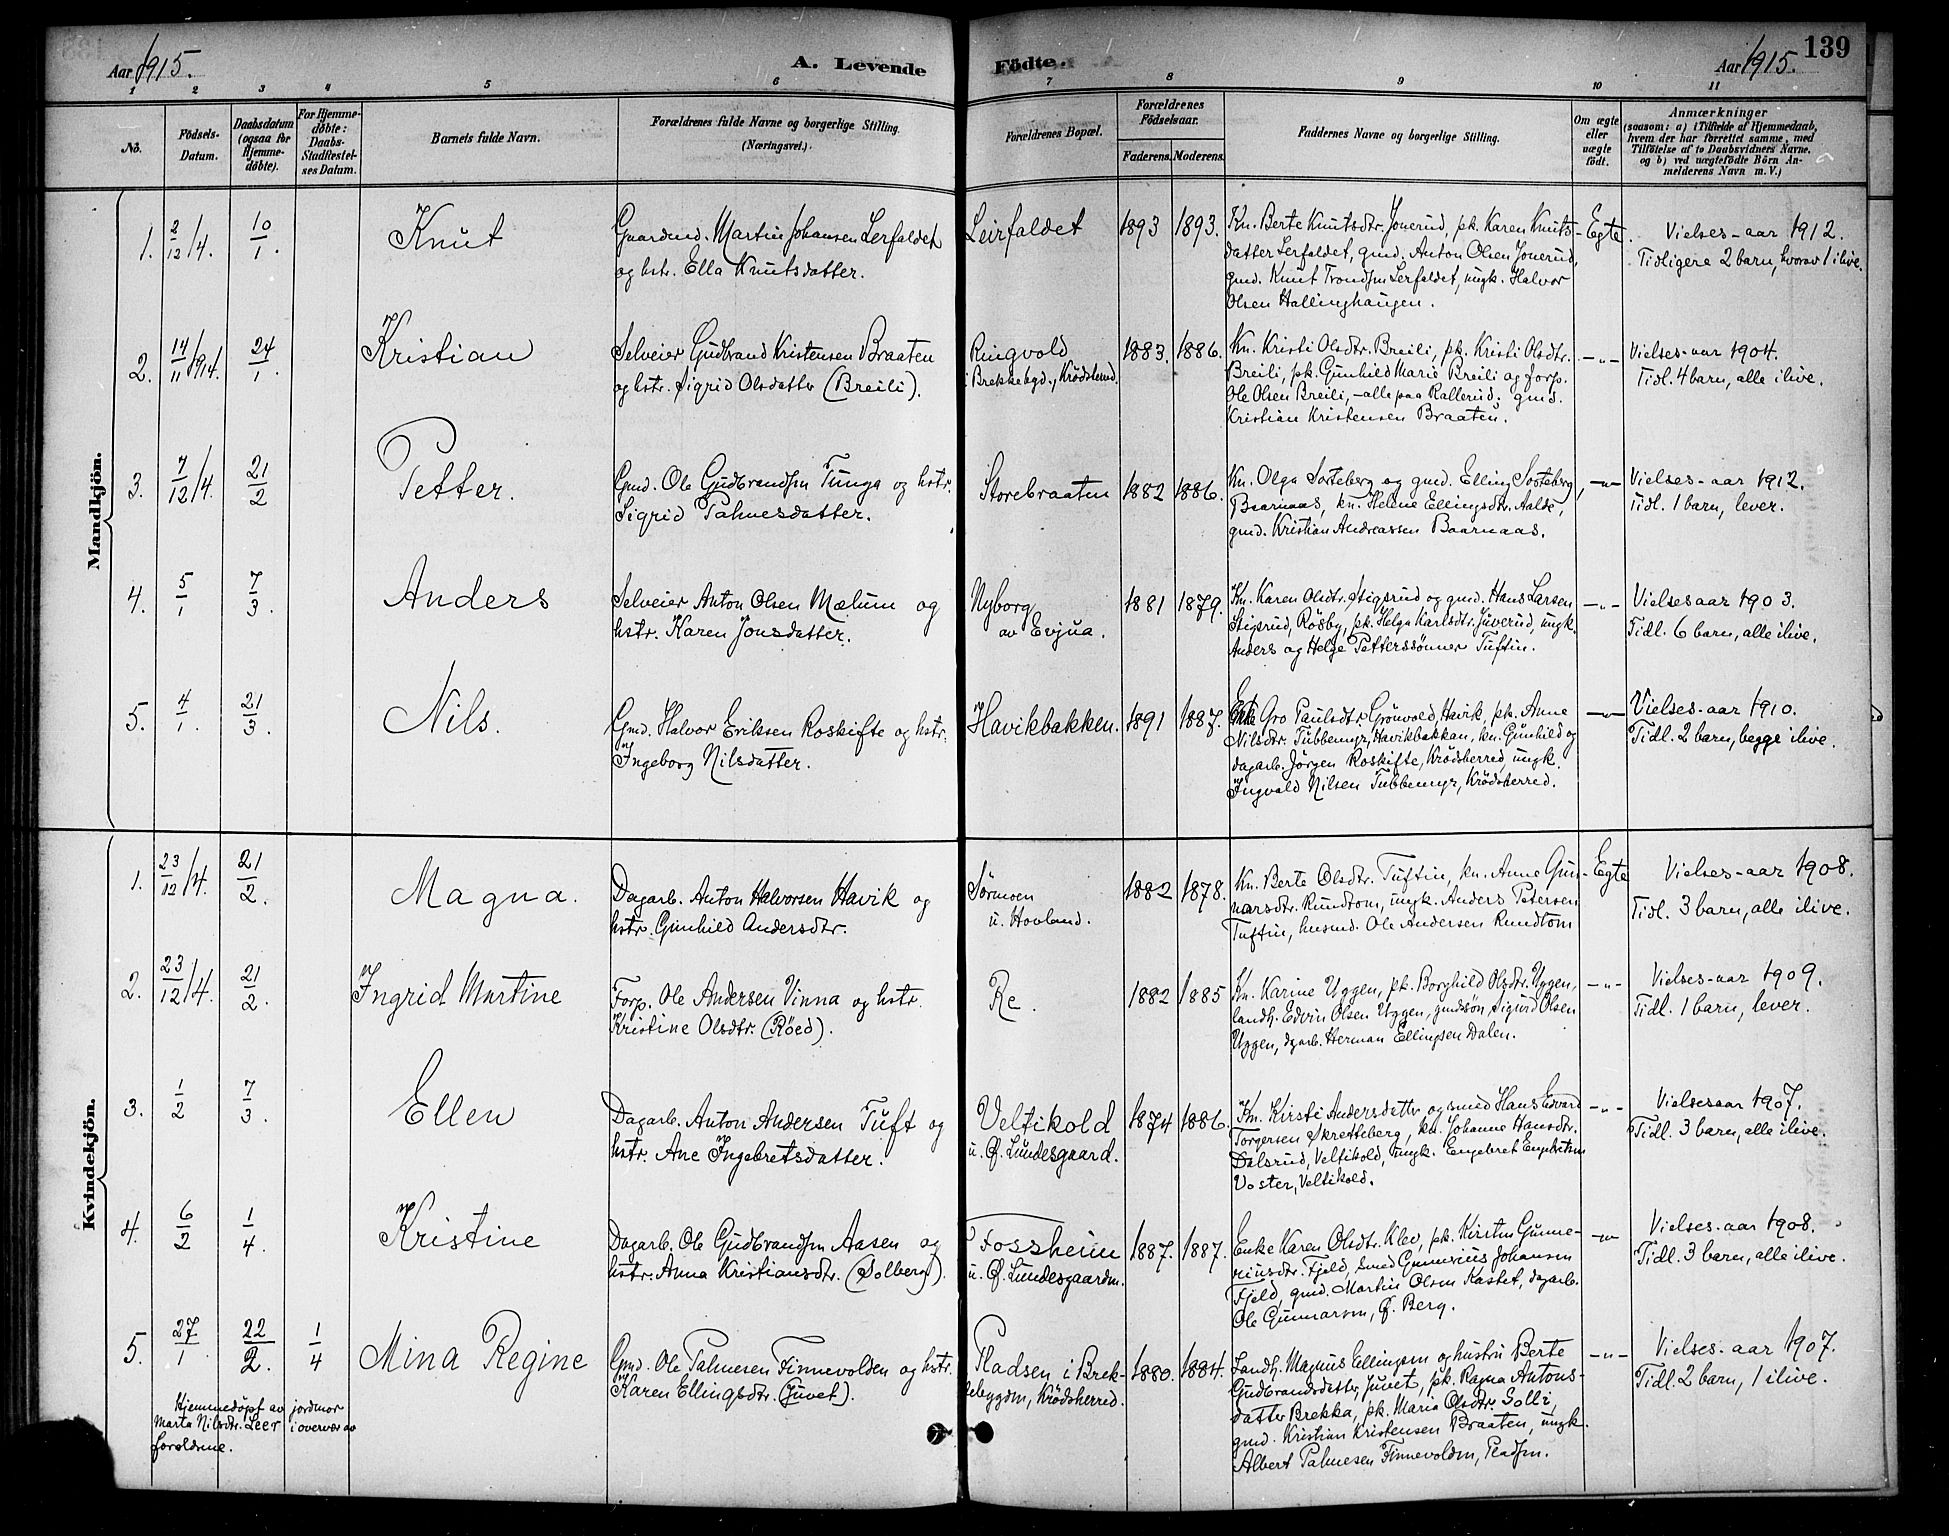 Aar 1915.
A. Levende
Födte.
Aar 1915.
139
1 2 3 4 5 6 7 8 9 10 11
No.
Födsels-
Datum.
Daabsdatum
(ogsaa for
Hjemme-
döbte).
For Hjemme-
döbte:
Daabs-
Stadfæstel-
ses Datum.
Barnets fulde Navn.
Forældrenes fulde Navne og borgerlige Stilling.
(Næringsvei.)
Forældrenes Bopæl.
Forældrenes
Födselsaar.
Faderens. Moderens.
Faddernes Navne og borgerlige Stilling.
Om ægte
eller
uægte
födt.
Anmærkninger
(saasom: a) i Tilfælde af Hjemmedaab,
hvem der har forrettet samme, med
Tilföielse af to Daabsvidners Navne,
og b) ved uægtefödte Börn An-
melderens Navn m. V.)
Mandkjön.
1. 2/12 /4. 10/1. Knut
Gaardmd. Martin Johansen Lerfaldet
og hstr. Ella Knutsdatter.
Leirfaldet 1893 1893.
Kn. Berte Knutsdtr. Jonerud, pk. Karen Knuts-
datter Lerfaldet, gmd. Anton Olsen Jonerud,
gmd. Knut Trondsen Lerfaldet, ungk. Halvor
Olsen Hallinghaugen.
Egte.
Vielses-aar 1912.
Tidligere 2 barn, hvorav 1 ilive.
2. 14/11 1914. 24/1. Kristian
Selveier Gudbrand Kristensen Braaten
og hstr. Sigrid Olsdatter (Breili).
Ringvold
i Brekkebygd., Krödsherred.
1883. 1886.
Kn. Kristi Olsdtr. Breili, pk. Kristi Olsdtr.
Breili, pk. Gunhild Marie Breili og forp.
Ole Olsen Breili, - alle paa Rallerud; gmd.
Kristian Kristensen Braaten.
-"-
Vielses-aar 1904.
Tidl. 4 barn, alle ilive.
3. 7/12 /4. 21/2 Petter.
Gmd. Ole Gudbrandsen Tunga og hstr.
Sigrid Palmesdatter.
Storebraaten 1882 1886.
Kn. Olga Sorteberg og gmd. Elling Sorteberg,
Baarnaas, kn. Helene Ellingsdtr. Aalde,
gmd. Kristian Andreassen Baarnaas.
-"-
Vielses-aar 1912.
Tidl. 1 barn, lever.
4. 5/1 7/3. Anders
Selveier Anton Olsen Mælum og
hstr. Karen Jonsdatter.
Nyborg
av Evjua.
1881 1879.
Kn. Karen Olsdtr. Stigsrud og gmd. Hans Larsen
Stigsrud, Rösby, pk. Helga Karlsdtr. Juverud, ungk.
Anders og Helge Petterssönner Tuftin.
-"-
Vielsesaar 1903.
Tidl. 6 barn, alle ilive.
5. 4/1. 21/3. Nils.
Gmd. Halvor Eriksen Roskifte og hstr.
Ingeborg Nilsdatter.
Havikbakken. 1891 1887.
Enke Gro Paulsdtr. Grönvold, Havik, pk. Anne
Nilsdtr. Tubbemyr, Havikbakkan, kn. Gunhild og
dagarb. Jörgen Roskifte, Krödsherred, ungk.
Ingvald Nilsen Tubbemyr, Krödsherred.
-"-
Vielses-aar 1910.
Tidl. 2 barn, begge ilive.
Kvindekjön.
1. 23/12 /4. 21/2. Magna.
Dagarb. Anton Halvorsen Havik og
hstr. Gunhild Andersdtr.
Sörmoen
u. Hovland.
1882 1878.
Kn. Berte Olsdtr. Tuftin, kn. Anne Gun-
narsdtr. Rundtom, ungk. Anders Petersen
Tuftin, husmd. Ole Andersen Rundtom
Egte
Vielses-aar 1908.
Tidl. 3 barn, alle ilive.
2. 23/12 /4. 21/2. Ingrid Martine
Forp. Ole Andersen Vinna og hstr.
Kristine Olsdtr. (Röed).
Re. 1882 1885
Kn. Karine Uggen, pk. Borghild Olsdtr. Uggen,
landh. Edvin Olsen Uggen, gmdssön Sigurd Olsen
Uggen, dgarb. Herman Ellingsen Dalen.
-"-
Vielses-aar 1909.
Tidl. 1 barn, lever.
3. 1/2 7/3. Ellen
Dagarb. Anton Andersen Tuft og
hstr. Ane Ingebretsdatter.
Veltikold
u. Ø. Lundesgaard.
1874 1886.
Kn. Kirsti Andersdettr og smed Hans Edvard
Torgersen Skretteberg, kn. Johanne Hansdtr.
Dalsrud, Veltikold, ungk. Engebret Engebretsen
Voster, Veltikold.
-"-
Vielsesaar 1907.
Tidl. 3 barn, alle ilive.
4. 6/2 1/4. Kristine
Dagarb. Ole Gudbrandsen Aasen og
hstr. Anna Kristiansdtr. (Solberg).
Fossheim
u. Ø. Lundesgaardn.
1887. 1887.
Enke Karen Olsdtr. Klev, pk. Kirsten Gunne-
riusdtr. Fjeld, smed Gunnerius Johansen
Fjeld, gmd. Martin Olsen Kastet, dagarb.
Ole Gunnarsen, Ø. Berg.
-"-
Vielses-aar 1908.
Tidl. 3 barn, alle ilive.
5. 27/1. 22/2. 1/4 Mina Regine
Gmd. Ole Palmesen Finnevolden og hstr.
Karen Ellingsdtr. (Juvet).
Pladsen i Brek-
kebygden, Krödsherred.
1880. 1884.
Landh. Magnus Ellingsen og hustru Berte
Gudbrandsdatter Juvet, pk. Ragna Antons-
datter Brekka, pk. Maria Olsdtr. Solli,
gmd. Kristian Kristensen Braaten, ungk.
Albert Palmesen Finnevolden, Pladsen.
-"-
Vielses-aar 1907.
Tidl. 2 barn, 1 ilive.
Hjemmedöpt av jordmor
Marta Nilsdtr. Leer i overvær av
forældrene.